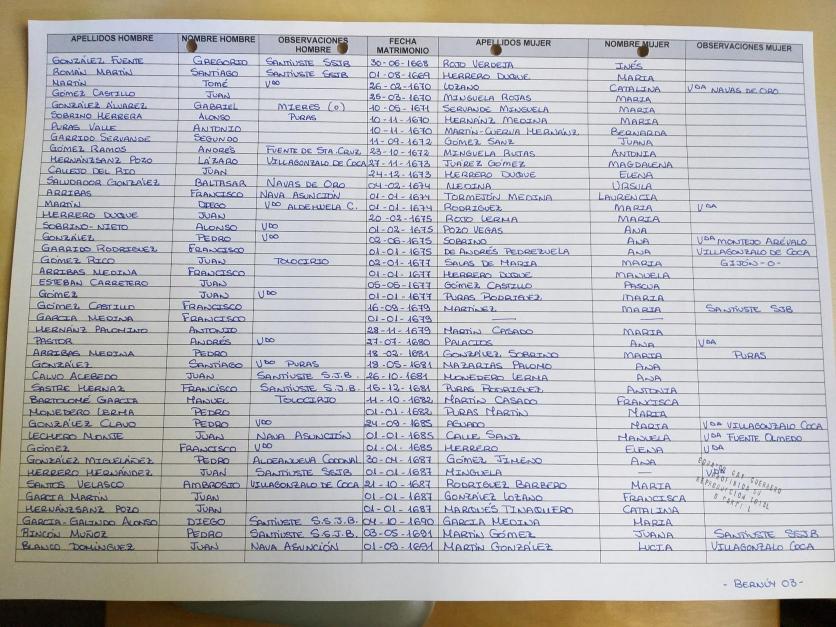 APELLIDOS HOMBRE NOMBRE HOMBRE OBSERVACIONES HOMBRE FECHA MATRIMONIO APELLIDOS MUJER NOMBRE MUJER OBSERVACIONES MUJER
GONZÁLEZ FUENTE GREGORIO SANTIUSTE SSJB 30-06-1668 ROJO VERDEJA INÉS
ROMÁN MARTÍN SANTIAGO SANTIUSTE SSJB 01-08-1669 HERRERO DUQUE MARIA
MARTÍN TOMÉ Vdo 26-02-1670 LOZANO CATALINA Vda NAVAS DE ORO
GÓMEZ CASTILLO JUAN 25-03-1670 MINGUELA ROJAS MARIA
GONZÁLEZ ÁLVAREZ GABRIEL MIERES (O) 10-05-1671 SERVANDE MINGUELA MARIA
SOBRINO HERRERA ALONSO PURAS 10-11-1670 HERNÁNZ MEDINA MARIA
PURAS VALLE ANTONIO 10-11-1670 MARTÍN-CUERVA HERNÁNZ BERNARDA
GARRIDO SERVANDE SEGUNDO 11-09-1672 GÓMEZ SANZ JUANA
GÓMEZ RAMOS ANDRÉS FUENTE DE STA. CRUZ 23-10-1672 MINGUELA RUTAS ANTONIA
HERNÁNZSANZ POZO LÁZARO VILLAGONZALO DE COCA 27-11-1673 JUAREZ GÓMEZ MAGDALENA
CALLEJO DEL RIO JUAN 24-12-1673 HERRERO DUQUE ELENA
SALUDADOR GONZÁLEZ BALTASAR NAVAS DE ORO 04-02-1674 MEDINA ÚRSULA
ARRIBAS FRANCISCO NAVA ASUNCIÓN 01-01-1674 TORMEJÓN MEDINA LAURENCIA
MARTÍN DIEGO Vdo ALDEHUELA C. 01-01-1674 RODRIGUEZ MARIA Vda
HERRERO DUQUE JUAN 20-02-1675 ROJO LERMA MARIA
SOBRINO-NIETO ALONSO Vdo 01-02-1675 POZO VEGAS ANA
GONZÁLEZ PEDRO Vdo 02-06-1675 SOBRINO ANA Vda MONTEJO ARÉVALO
GARRIDO RODRIGUEZ FRANCISCO 01-01-1675 DE ANDRÉS PEDREZUELA ANA VILLAGONZALO DE COCA
GÓMEZ RICO JUAN TOLOCIRIO 02-01-1677 SALAS DE MARIA MARIA GIJÓN-O-
ARRIBAS MEDINA FRANCISCO 01-01-1677 HERRERO DUQUE MANUELA
ESTEBAN CARRETERO JUAN 05-06-1677 GÓMEZ CASTILLO PASCUA
GÓMEZ JUAN Vdo 01-01-1677 PURAS RODRIGUEZ MARIA
GÓMEZ CASTILLO FRANCISCO 16-09-1679 MARTÍNEZ MARIA SANTIUSTE SJB
GARCIA MEDINA FRANCISCO 01-01-1679
HERNÁNZ PALOMINO ANTONIO 28-11-1679 MARTÍN CASADO MARIA
PASTOR ANDRÉS Vdo 27-07-1680 PALACIOS ANA Vda
ARRIBAS MEDINA PEDRO 18-02-1681 GONZÁLEZ SOBRINO MARIA PURAS
GONZÁLEZ SANTIAGO Vdo PURAS 18-05-1681 MAZARIAS PALOMO ANA
CALVO ACEBEDO JUAN SANTIUSTE S.J.B. 26-10-1681 MONEDERO LERMA ANA
SASTRE HERNAZ FRANCISCO SANTIUSTE S.J.B. 16-12-1681 PURAS RODRIGUEZ ANTONIA
BARTOLOMÉ GARCIA MANUEL TOLOCIRIO 11-10-1682 MARTÍN CASADO FRANCISCA
MONEDERO LERMA PEDRO 01-01-1682 PURAS MARTÍN MARIA
GONZÁLEZ CLAVO PEDRO Vdo 24-09-1685 AGUADO MARIA Vda VILLAGONZALO COCA
LECHERO MONTE JUAN NAVA ASUNCIÓN 01-01-1685 CALLE SANZ MANUELA Vda FUENTE OLMEDO
GÓMEZ FRANCISCO Vdo 01-01-1685 HERRERO ELENA Vda
GONZÁLEZ MIGUELÁÑEZ PEDRO ALDEANUEVA CODONAL 30-04-1687 GÓMEZ JIMENO ANA
HERRERO HERNÁNDEZ JUAN SANTIUSTE SSJB 01-01-1687 MINGUELA Vda
SANTOS VELASCO AMBROSIO VILLAGONZALO DE COCA 21-10-1687 RODRIGUEZ BARBERO MARIA
GARCIA MARTÍN JUAN 01-01-1687 GONZÁLEZ LOZANO FRANCISCA
HERNÁNZSANZ POZO JUAN 01-01-1687 MARQUÉS TINAQUERO CATALINA
GARCIA-GALINDO ALONSO DIEGO SANTIUSTE S.S.J.B. 04-10-1690 GARCIA MEDINA MARIA
RINCÓN MUÑOZ PEDRO SANTIUSTE S.S.J.B. 03-05-1691 MARTÍN GÓMEZ JUANA SANTIUSTE SSJB
BLANCO DOMÍNGUEZ JUAN NAVA ASUNCIÓN 01-09-1691 MARTÍN GONZÁLEZ LUCIA VILLAGONZALO COCA
GUERRERO
PROHIBIDA SU
REPRODUCCION TOTAL
O PARCIAL
- BERNÚY 03-